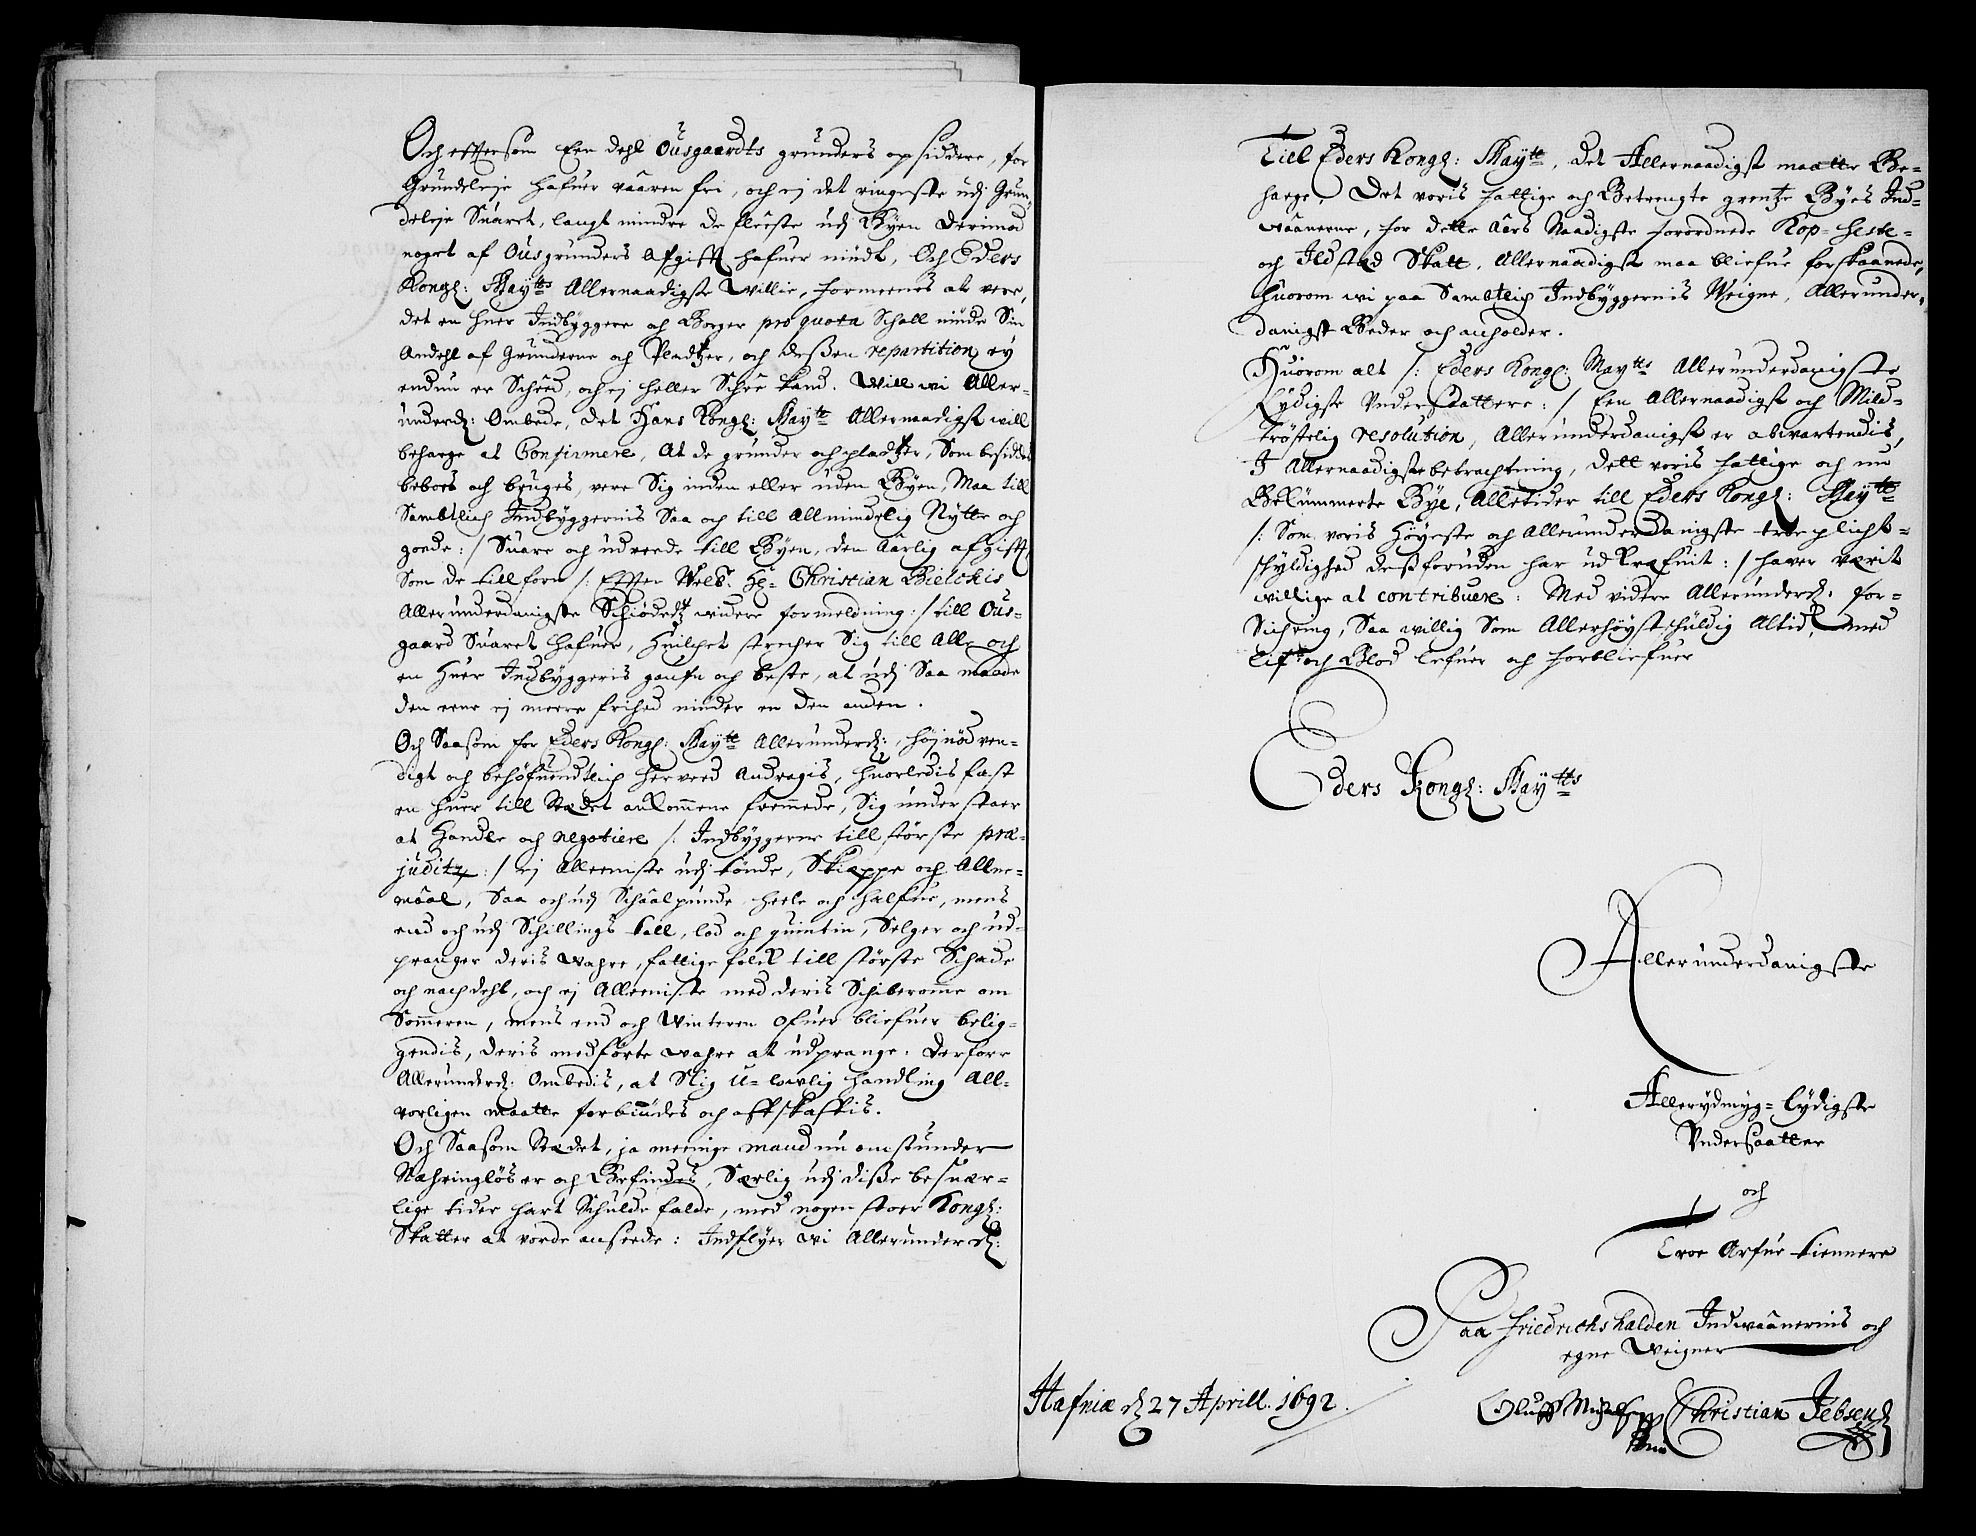 Och effter som Een dehl Ousgaardts gründers opsiddere, for
Grundeleje hafuer vaaren fri, och ej det ringeste udj Grun-
deleje Suaret, langt mindre de fleeste udj Byen derimod
noget af Ousgrunders Afgifft hafuer nündt, Och Eders
Kongl: Maytts Allernaadigste Willie, formeenes at vere,
det en huer Indbyggere och Borger pro quota Schall nüde Sin
Andehl af Gründerne och Pladtzer, och deßen repartition ey
endnu er Scheed, och ej heller Schee kand. Will wi Aller-
underd: Ombede, det Hans Kongl: Maytt Allernaadigst will
behage at Confirmere, At de grunder och pladtzer, Som besiddes
beboes och bruges, vere Sig inden eller uden Byen, Maa till
Sambtlich Indbyggernis Saa och till Allmindelig Nytte och
goede :/ Suare och udreede till Byen, den Aarlig afgifft,
Som de tillforn /: Effter Welb. Hr= Christian Bielchis
Allerunderdanigste Schiøders widere formeldning :/ till Ous-
gaard Suaret hafuer, huilchet strecher Sig till Alle och
en huer Indbyggeris gaufn och beste, at udj Saa maade
den eene ej meere frihed nüder en den anden.
Och Saasom for Eders Kongl: Maytt Allerunderd:, højnødven-
digt och behøfuendtlich herveed Andragis, huorledis fast
en huer till Stædet ankommene fremmede, Sig understaar
at Handle och negotiere /: Indbyggerne till største præ-
juditz :/ ej Alleeniste udj tønde, Skiæppe och Allne-
maal, Saa och udj Schaalpunde heele och halfue, mens
end och udj Schillings tall, lod och quintin, Selger och ud-
pranger deris wahre, fattige folck till største Schade
och nachdehl, och ej Alleeniste med deris Schiberomme om
Sommeren, mens end och Winteren ofuer bliefuer belig-
gendis, deris medførte wahre at udprange: Derfore
Allerunderd: Ombedis, at Slig U-lovlig handling All-
vorligen maatte forbiudes och affskaffis.
Och Saasom Stædet, ja meenige mand nu omstunder
Næhringløs er och Befindes, Særlig udj diße besuær-
lige tider hart Schulde falde, med nogen stoer Kongl:
Skatter at vorde anseede: Indflyer wi Allerunderd:
Till Eders Kongl: Maytt, det Allernaadigst maatte Be-
haege, Det voris fattige och Betrengte grentze Byes Ind-
vaanerne, for dette Aars Naadigste forordnede Kop- heste-
och Ildsted Skatt, Allernaadigst maa bliefue forskaanede,
huorom wi paa Sambtlich Indbyggernis Weigne, Allerunder-
danigst Beder och anholder.
Huorom alt /: Eders Kongl: Maytts Allerunderdanigste
Lydigste Undersaattere :/ Een Allernaadigst och Mild-
trøstelig resolution, Allerunderdanigst er abwartendis,
I Allernaadigste betrachtning, dett voris fattige och nu
Bekummerte Bye, Alletider till Eders Kongl: Maytt
/: Som voris Høyeste och Allerunderdanigste troe plicht-
schyldighed desforuden har udkræfuit :/ haver værit
willige at contribuere: Med videre Allerunderd: for-
Sichring, Saa willig Som Allerhøyst schüldig Altid, med
Lif och Blod lefuer och forbliefuer
Eders Kongl: Maytts
Allerunderdanigste
Allerydmyg= Lydigste
Undersaatter
och
Troe Arfue tiennere
Paa Friedrichshalden Indwaanernis och
egne Weigner
Hafniæ d 27 Aprill. 1692.
Oluff Christian Jebsen